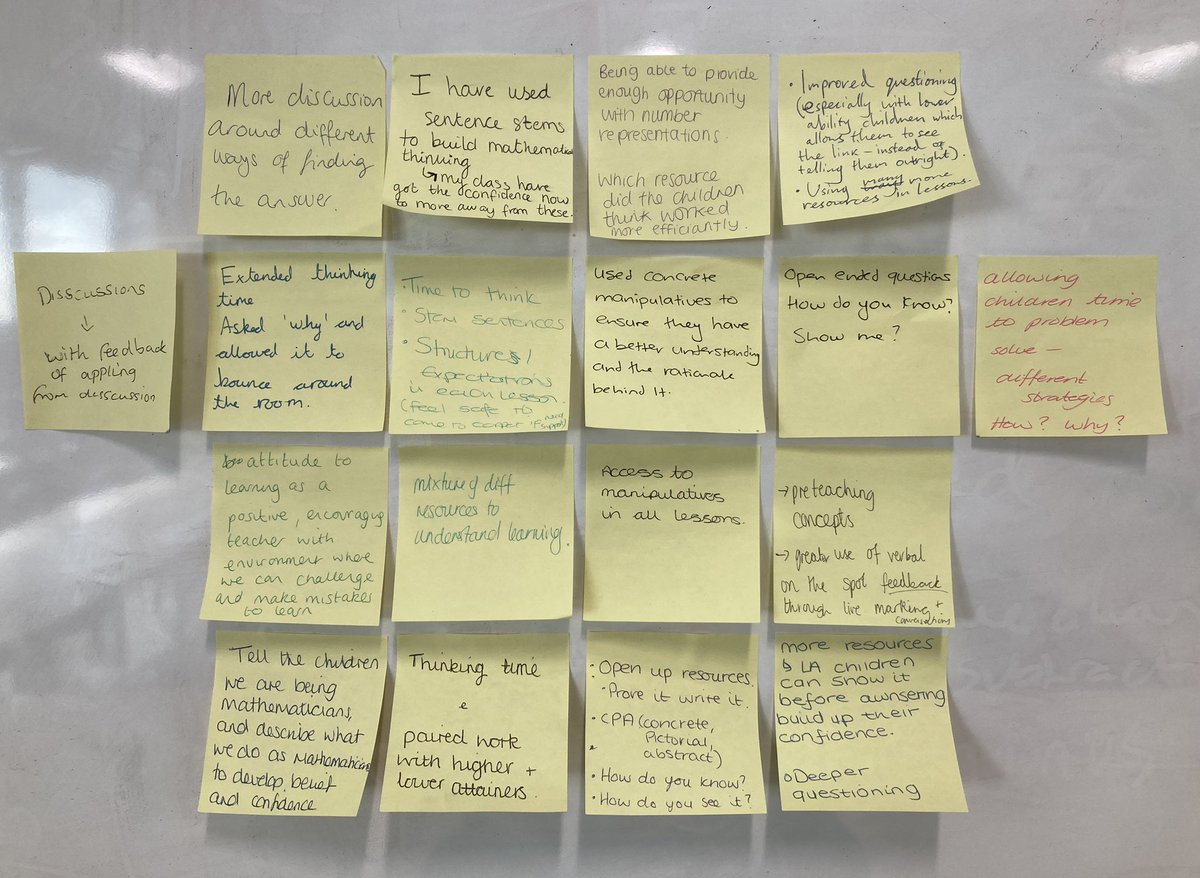 More discussion
around different
ways of finding
the answer.
I have used
sentence stems
to build mathematical
thinking
↳ my class have
got the confidence now
to move away from these.
Being able to provide
enough opportunity
with number
representations.
Which resource
did the children
think worked
more efficiantly.
• Improved questioning
(especially with lower
ability children which
allows them to see
the link - instead of
telling them outright).
• Using many more
resources in lessons.
Disscussions
↓
with feedback
of appling
from disscussion
Extended thinking
time
Asked 'why' and
allowed it to
bounce around
the room.
• Time to think
• Stem sentences
• Structures/
Expectations
in each lesson.
(feel safe to
come to carpet if need
support)
Used concrete
manipulatives to
ensure they have
a better understanding
and the rationale
behind it.
Open ended questions
How do you know?
Show me?
allowing
children time
to problem
solve -
different
strategies
How? why?
attitude to
learning as a
positive, encouraging
teacher with
environment where
we can challenge
and make mistakes
to learn
mixture of diff
resources to
understand learning.
Access to
manipulatives
in all lessons.
→ preteaching
concepts
→ greater use of verbal
on the spot feedback
through live marking +
conversations
Tell the children
we are being
mathematicians,
and describe what
we do as Mathematicians
to develop belief
and confidence
Thinking time
&
paired work
with higher +
lower attainers.
• Open up resources.
• Prove it write it.
• CPA (concrete,
Pictorial,
abstract)
• How do you know?
• How do you see it?
more resources
↳ LA children
can show it
before awnsering
build up their
confidence.
o Deeper
questioning